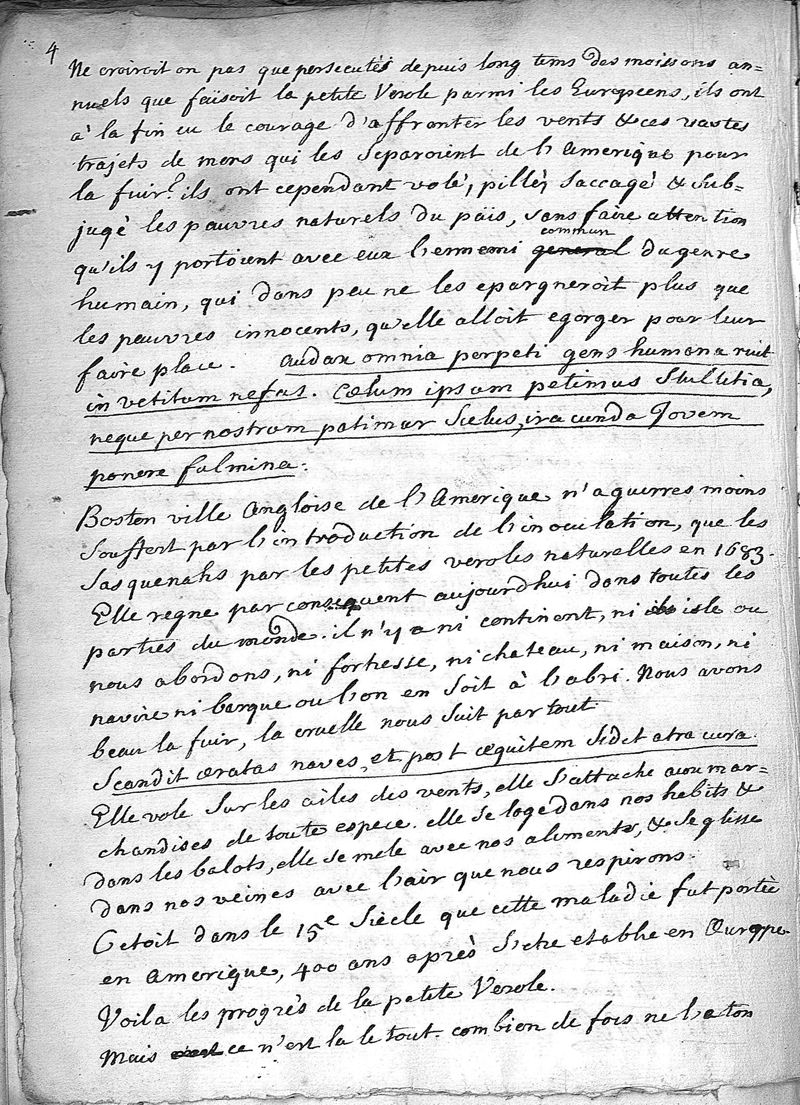 4
Ne croiroit on pas que persecutés depuis long tems des moissons an=
nuels que faisoit la petite Verole parmi les Europeens, ils ont
à la fin eu le courage d'affronter les vents & ces vastes
trajets de mers qui les Separoient de l'Amerique pour
la fuir? ils ont cependant volé, pillé, Saccagé & Sub=
jugé les pauvres naturels du païs, sans faire attention
commun
qu'ils y portoient avec eux l'ennemi general du genre
humain, qui dans peu ne les epargneroit plus que
les pauvres innocents, qu'elle alloit egorger pour leur
faire place. Audax omnia perpeti gens humana ruit
in vetitum nefas. Cœlum ipsum petimus Stultitia,
neque per nostrum patimur Scelus, iracunda Jovem
ponere fulmina.
Boston ville Angloise de l'Amerique n'a guerres moins
Souffert par l'introduction de l'inoculation, que les
Sasquenahs par les petites veroles naturelles en 1683.
Elle regne par consequent aujourdhui dans toutes les
parties du monde. il n'y a ni continent, ni isle ou
nous abordons, ni forteresse, ni chateau, ni maison, ni
navire ni barque ou l'on en Soit à l'abri. Nous avons
beau la fuir, la cruelle nous Suit par tout
Scandit æratas naves, et post æquitem Sidet atra cura.
Elle vole Sur les ailes des vents, elle S'attache aux mar=
chandises de toute espece. elle se loge dans nos habits &
dans les balots, elle se mele avec nos aliments, & Se glisse
dans nos veines avec l'air que nous respirons.
C'etoit dans le 15e Siècle que cette maladie fut portée
en Amerique, 400 ans après S'etre etablie en Europe
Voila les progrès de la petite Verole.
Mais ce n'est la le tout. combien de fois ne l'a ton